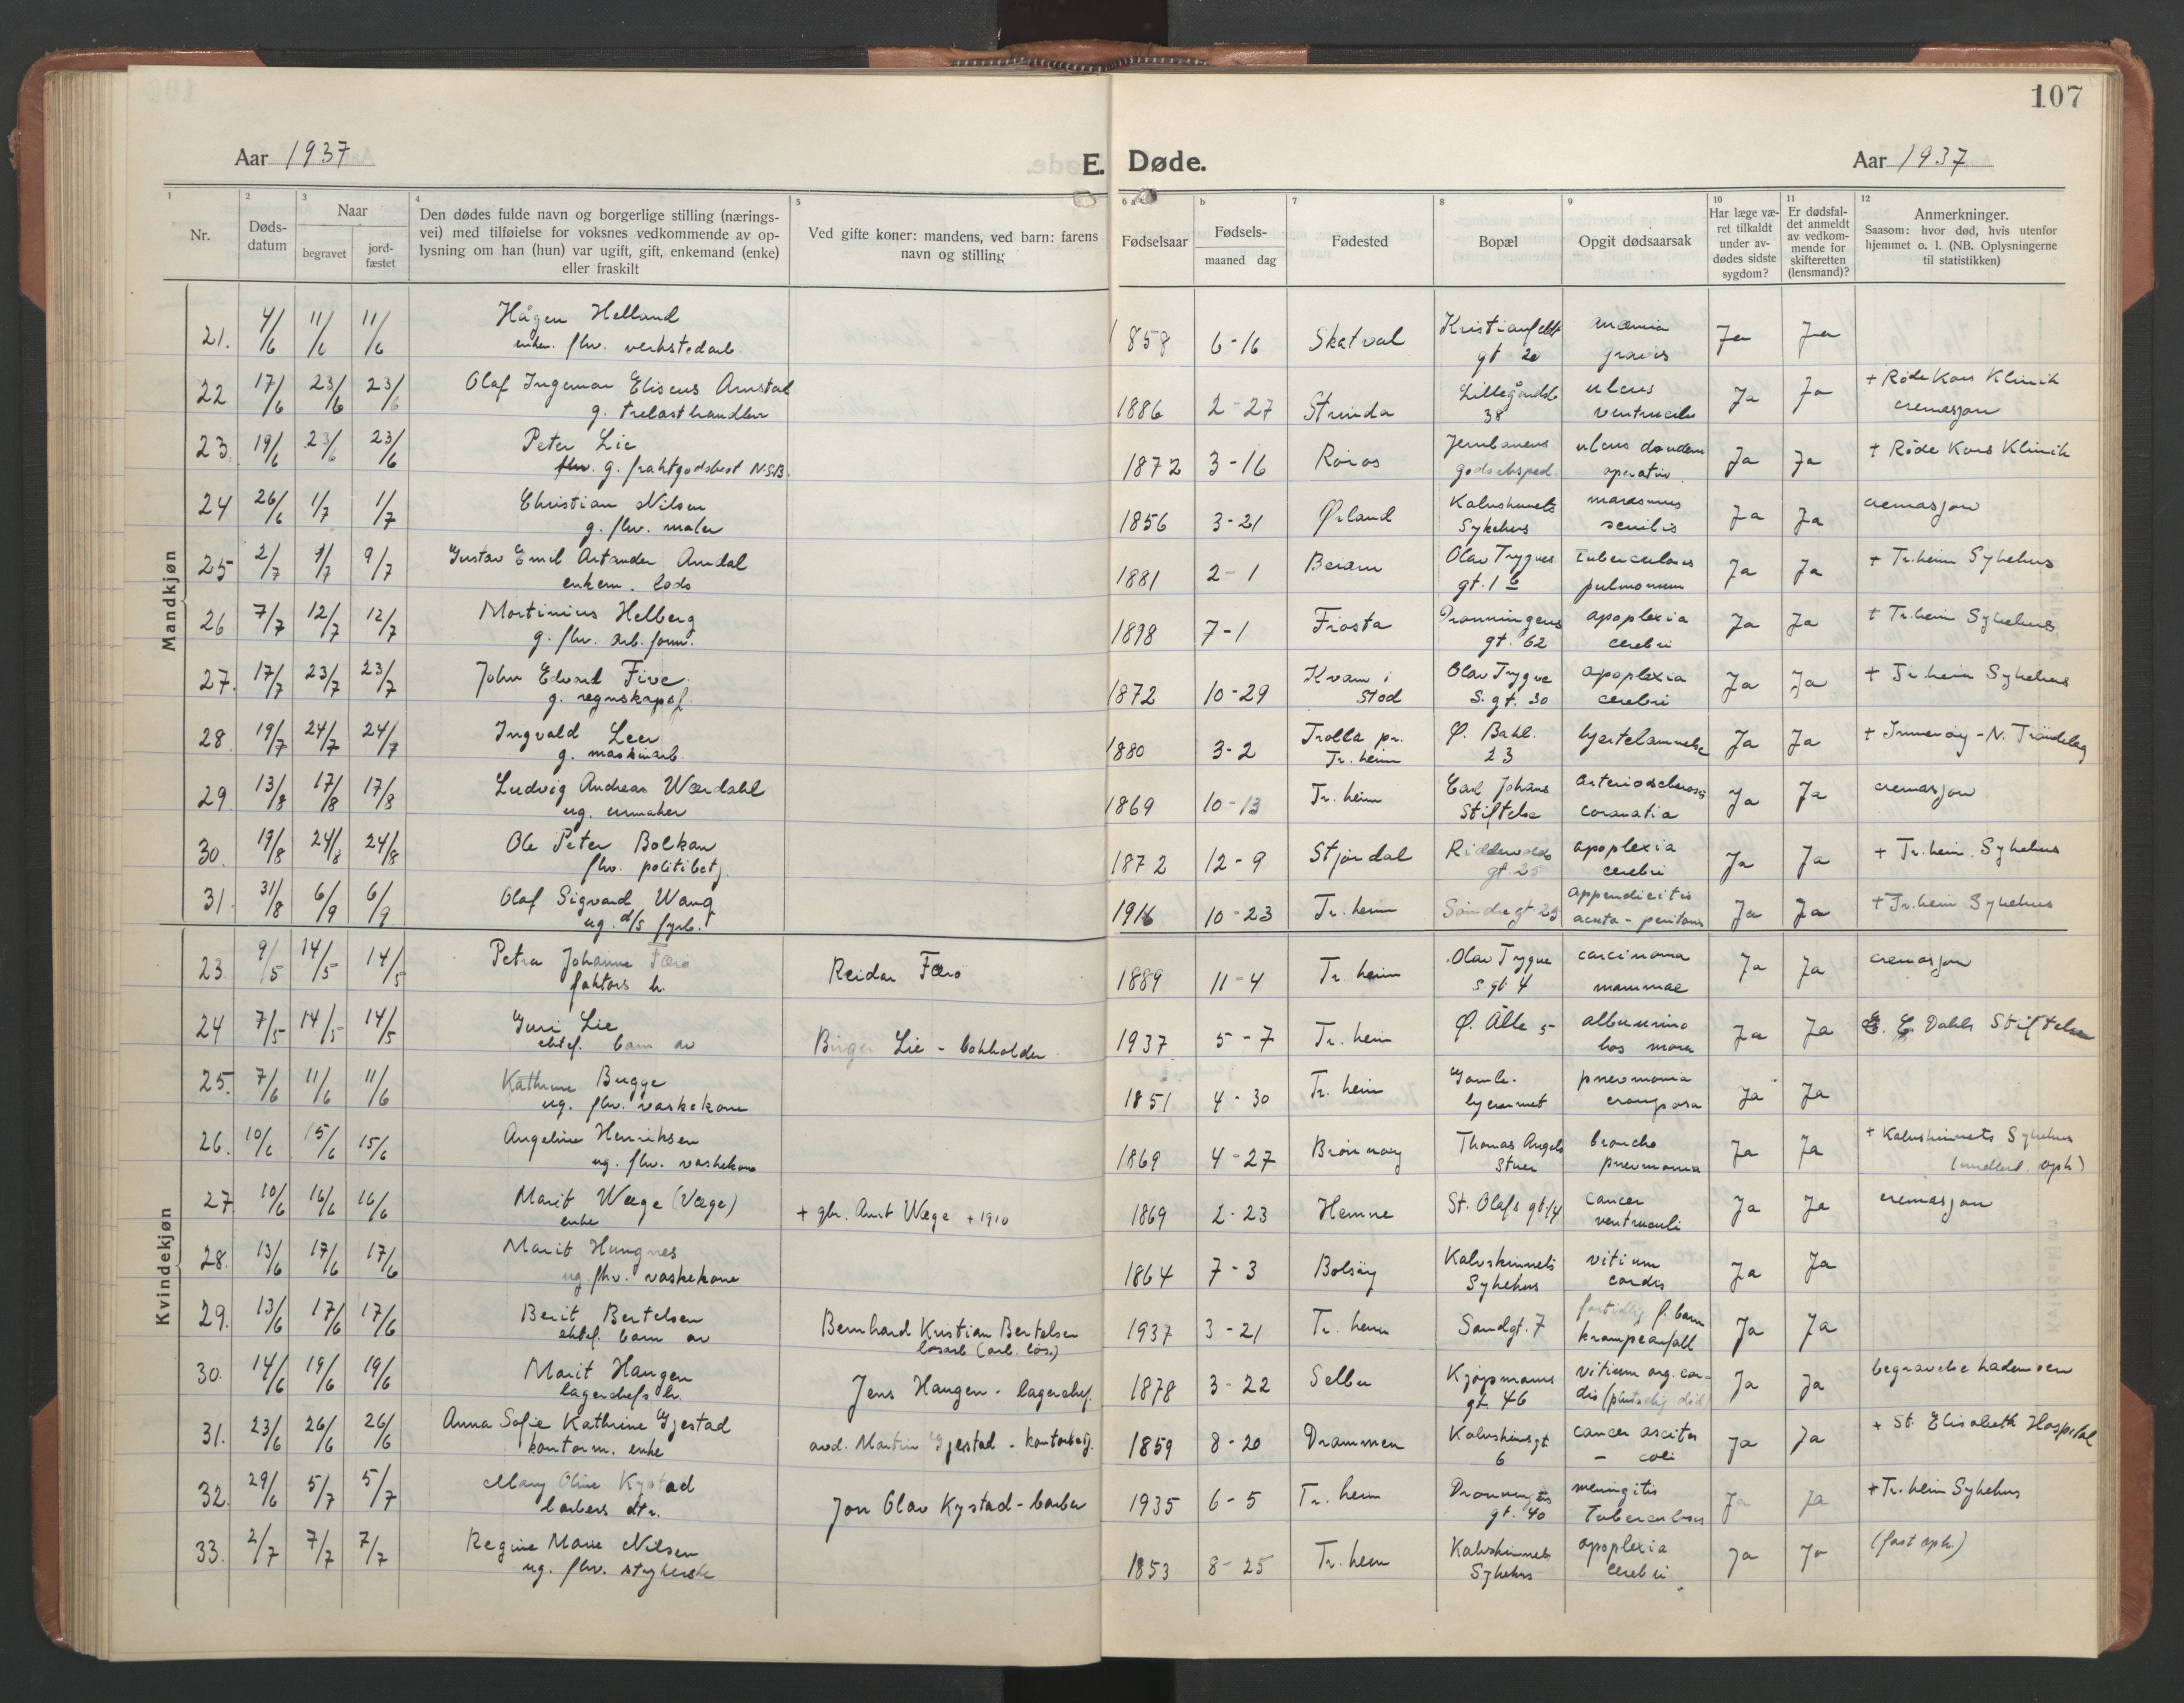 107
Aar 1937
E. Døde.
Aar 1937
1 2 3 4 5 6 a b 7 8 9 10 11 12
Nr.
Døds-
datum
Naar
begravet
jord-
fæstet
Den dødes fulde navn og borgerlige stilling (nærings-
vei) med tilføielse for voksnes vedkommende av op-
lysning om han (hun) var ugift, gift, enkemand (enke)
eller fraskilt
Ved gifte koner: mandens, ved barn: farens
navn og stilling
Fødselsaar
Fødsels-
maaned dag
Fødested
Bopæl
Opgit dødsaarsak
Har læge væ-
ret tilkaldt
under av-
dødes sidste
sygdom?
Er dødsfal-
det anmeldt
av vedkom-
mende for
skifteretten
(lensmand)?
Anmerkninger.
Saasom: hvor død, hvis utenfor
hjemmet o. l. (NB. Oplysningerne
til statistikken)
Mandkjøn
21. 4/6 11/6 11/6 Hågen Helland 1858 6-16 Skatval anæmia Ja Ja
enkem. fhv. verkstedarb. gt 20 gravis
22 17/6 23/6 23/6 Olaf Ingemar Eliseus 1886 2-27 Strinda ulcus Ja Ja + Røde Kors Klinik
g. trelasthandler 38 ventriculi cremasjon
23. 19/6 23/6 23/6 Peter Lie 1872 3-16 Røros Jernbanens ulcus Ja Ja + Røde Kors Klinik
g. fraktgodsbest N.S.B. godseksped. operativ
24 26/6 1/7 1/7 Christian Nilsen 1856 3-21 Ørland Kalvskinnets marasmus Ja Ja cremasjon
g. fhv. maler Sykehus senilis
25 2/7 9/7 9/7 Gustav Emil 1881 2-1 Beiarn Olav Trygves tuberculosis Ja Ja + Tr.heim Sykehus
enkem. lods gt. 1 b pulmonum
26 7/7 12/7 12/7 Martinius Helberg 1898 7-1 Frosta Dronningens apoplexia Ja Ja + Tr.heim Sykehus
g. fhv. arb. form. gt. 62 cerebri
27. 17/7 23/7 23/7 John Edvard Five 1872 10-29 Kvam i Olav Trygve apoplexia Ja Ja + Tr.heim Sykehus
g. regnskapsf. Stod S. gt. 30 cerebri
28 19/7 24/7 24/7 Ingvald Leer 1880 3-2 Trolla pr. Ø. Bakl. hjertelammelse Ja Ja + Inderøy - N. Trøndelag
g. maskinarb. Tr.heim 23
29. 13/8 17/8 17/8 Ludvig Andreas Wærdahl 1869 10-13 Tr.heim Carl Johans arteriosclerosis Ja Ja cremasjon
ug. urmaker Stiftelse coronaria
30. 19/8 24/8 24/8 Ole Peter Bolkan 1872 12-9 Stjørdal Riddervolds apoplexia Ja Ja + Tr.heim. Sykehus
fhv. politibetj. gt. 25 cerebri
31. 31/8 6/9 6/9 Olaf Sigvard Wang 1916 10-23 Tr.heim Søndregt 23 appendicitis Ja Ja + Tr.heim Sykehus
ug. d/s fyrb. acuta - peritonis
Kvindekjøn
23. 9/5 14/5 14/5 Petra Johanne Færø Reidar Færø 1889 11-4 Tr.heim Olav Trygve carcinoma Ja Ja cremasjon
faktors h. s. gt 4 mammae
24 7/5 14/5 14/5 Guri Lie Birger Lie - bokholder 1937 5-7 Tr.heim Ø. Alle 5 albumino Ja Ja E. C. Dahls Stiftelse
ektef. barn av hos mora
25. 7/6 11/6 11/6 Kathrine Bugge 1851 4-30 Tr.heim Gamle- pneumonia Ja Ja
ug. fhv. vaskekone hjemmet crouposa
26. 10/6 15/6 15/6 Angeline Henriksen 1869 4-27 Brønnøy Thomas Angels broncho Ja Ja + Kalvskinnets Sykehus
ug. fhv. vaskekone Stuer pneumonia (midlert. oph)
27. 10/6 16/6 16/6 Marit Wæge (Væge) + gbr. Arnt Wæge + 1910 1869 2-23 Hemne St. Olafs gt 14 cancer Ja Ja cremasjon
enke ventriculi
28. 13/6 17/6 17/6 Marit Hungnes 1864 7-3 Bolsøy Kalvskinnets vitium Ja Ja
ug. fhv. vaskekone Sykehus cordis
29. 13/6 17/6 17/6 Berit Bertelsen Bernhard Kristian Bertelsen 1937 3-21 Tr.heim Sandgt. 7 fortidlig f. barn Ja Ja
ektef. barn av løsarb (arb. løs.) krampeanfall
30. 14/6 19/6 19/6 Marit Haugen Jens Haugen - lagerchef. 1878 3-22 Selbu Kjøpmanns vitium org. cor- Ja Ja begravelse Lademoen
lagerchefs h. gt. 46 dis (plutselig død)
31. 23/6 26/6 26/6 Anna Sofie Kathrine Gjestad avd. Martin Gjestad - kontorbetj. 1859 8-20 Drammen Kalvskinsgt. cancer ascites Ja Ja + St. Elisabeth Hospital
kontorm. enke 6 - coli
32. 29/6 5/7 5/7 Mary Oline Kystad Jon Olav Kystad - barber 1935 6-5 Tr.heim Dronningens meningitis Ja Ja + Tr.heim Sykehus
barbers dtr. gt. 40 Tuberculosa
33. 2/7 7/7 7/7 Regine Marie Nilsen 1853 8-25 Tr.heim Kalvskinnets apoplexia Ja Ja (fast oph.)
ug. fhv. strykerske Sykehus cerebri